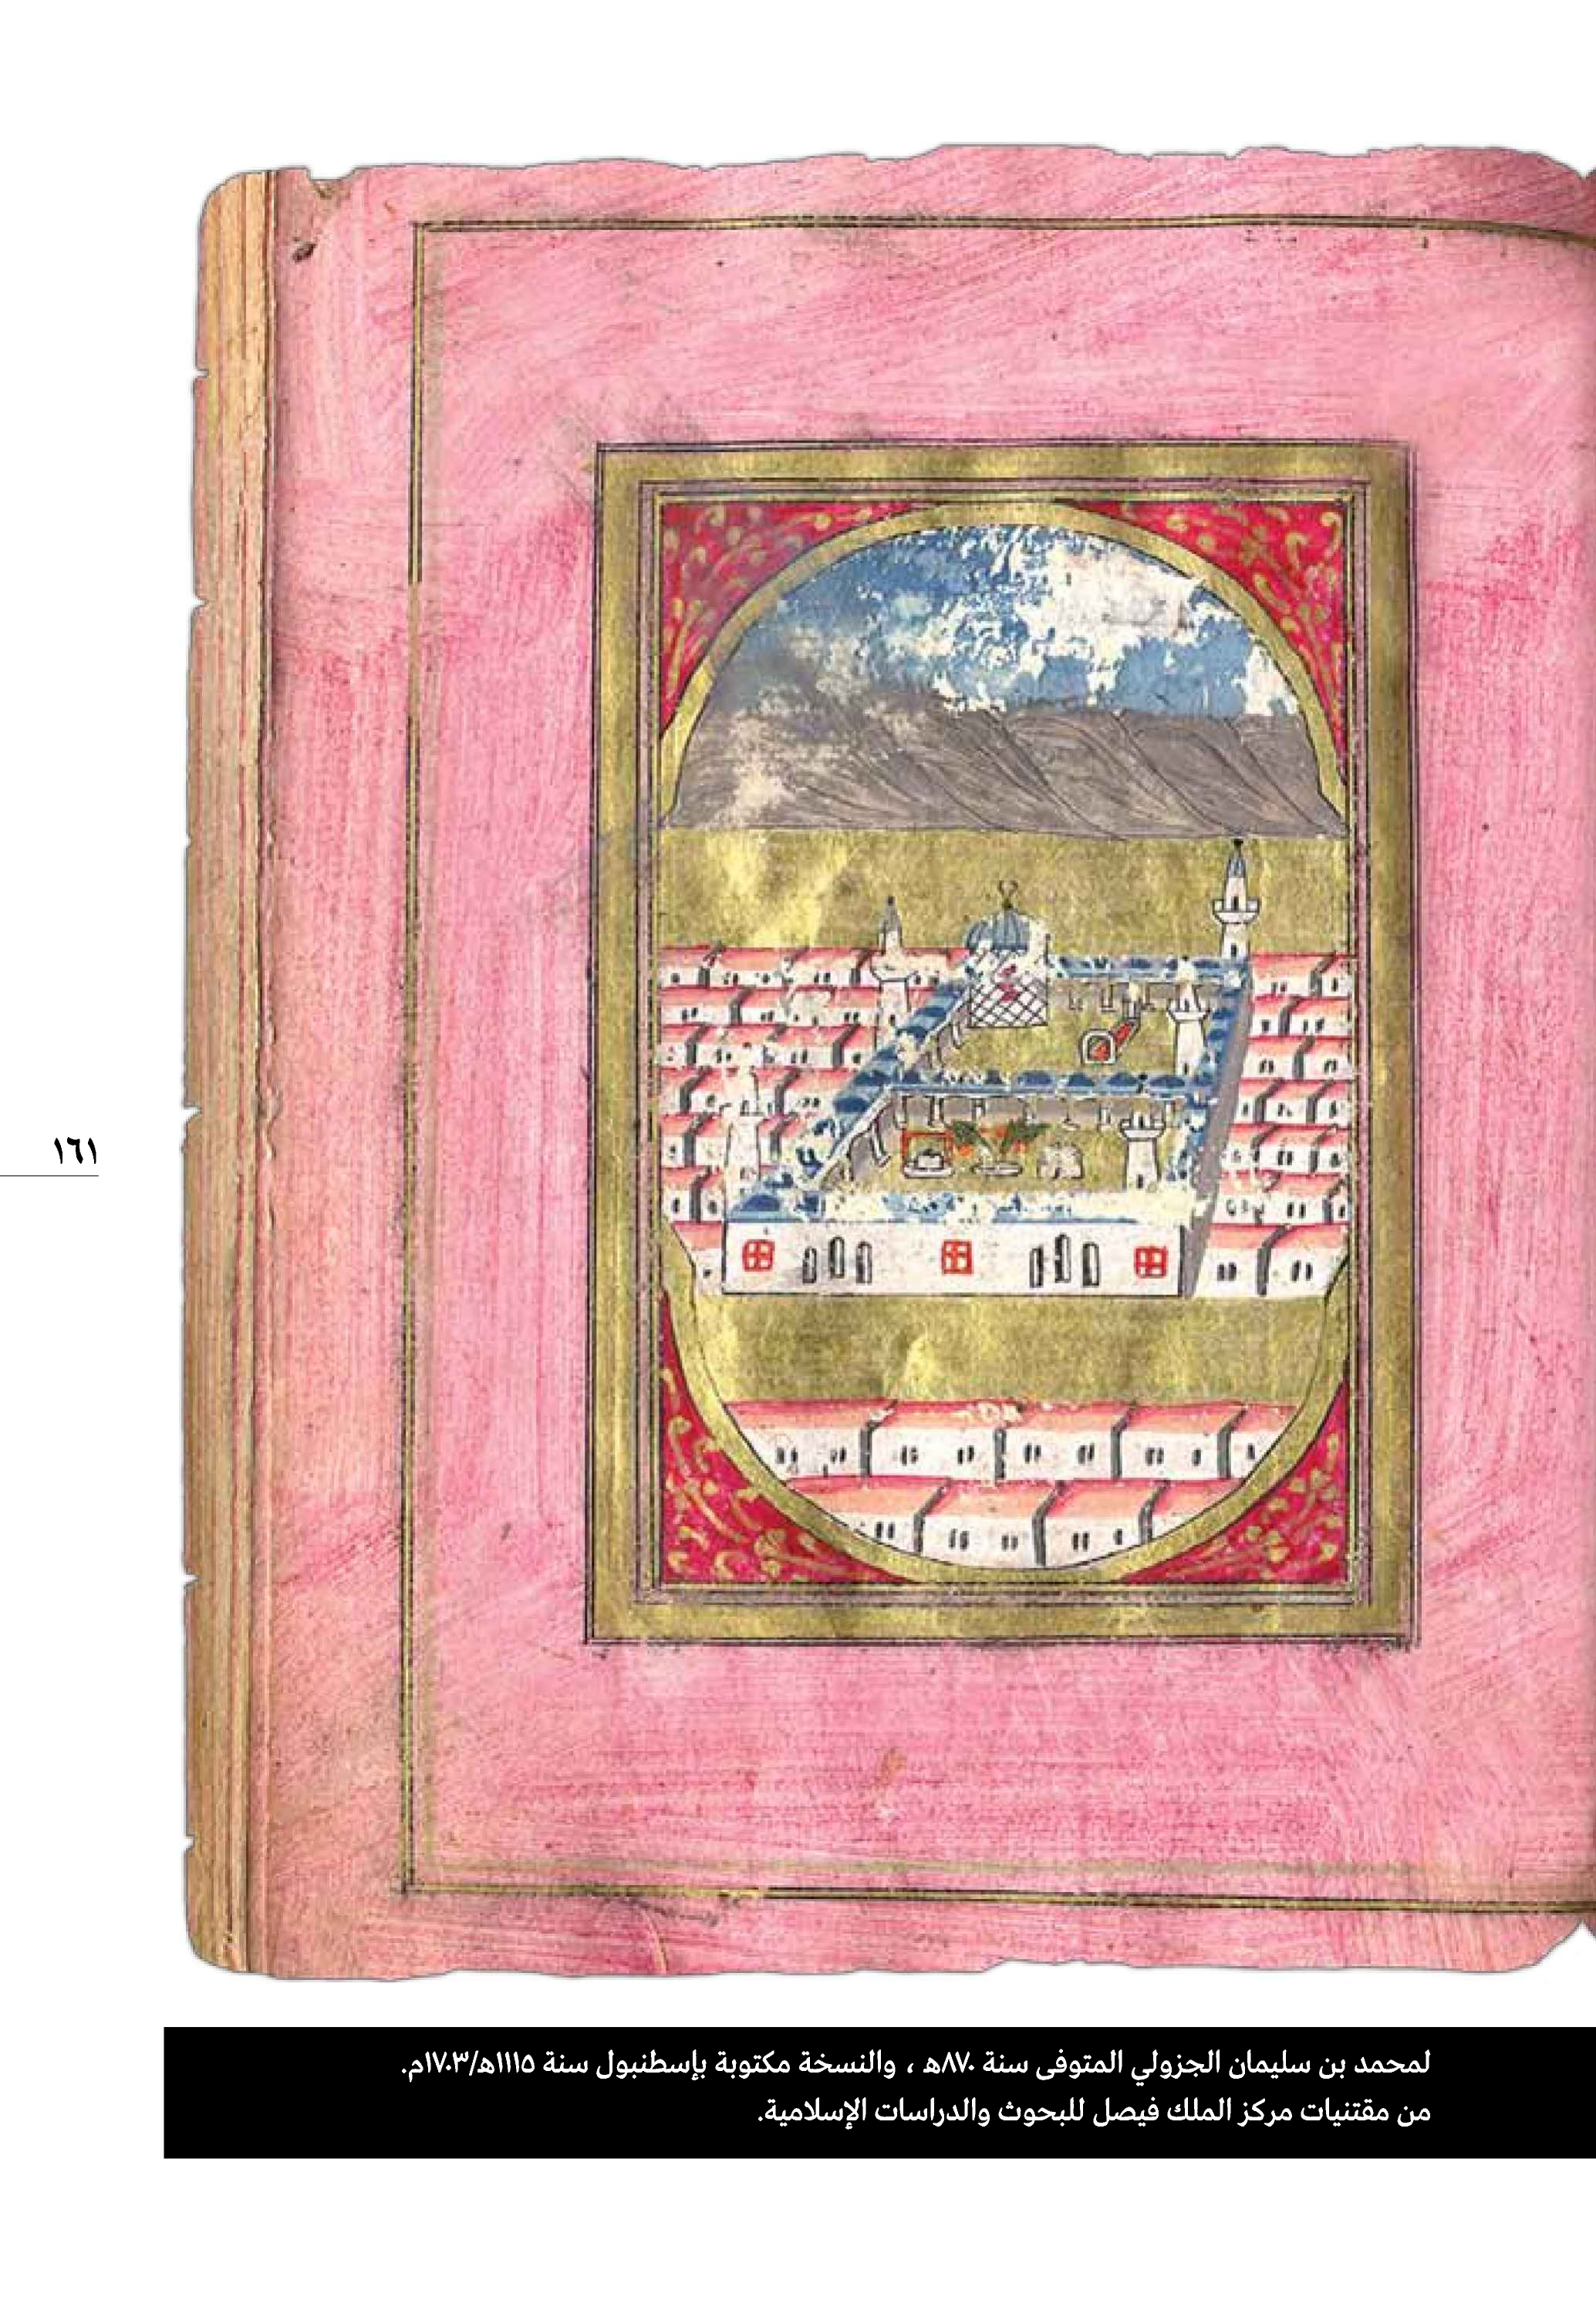 ١٦١
لمحمد بن سليمان الجزولي المتوفى سنة ٨٧٠هـ ، والنسخة مكتوبة بإسطنبول سنة ١١١٥هـ/١٧٠٣م.
من مقتنيات مركز الملك فيصل للبحوث والدراسات الإسلامية.